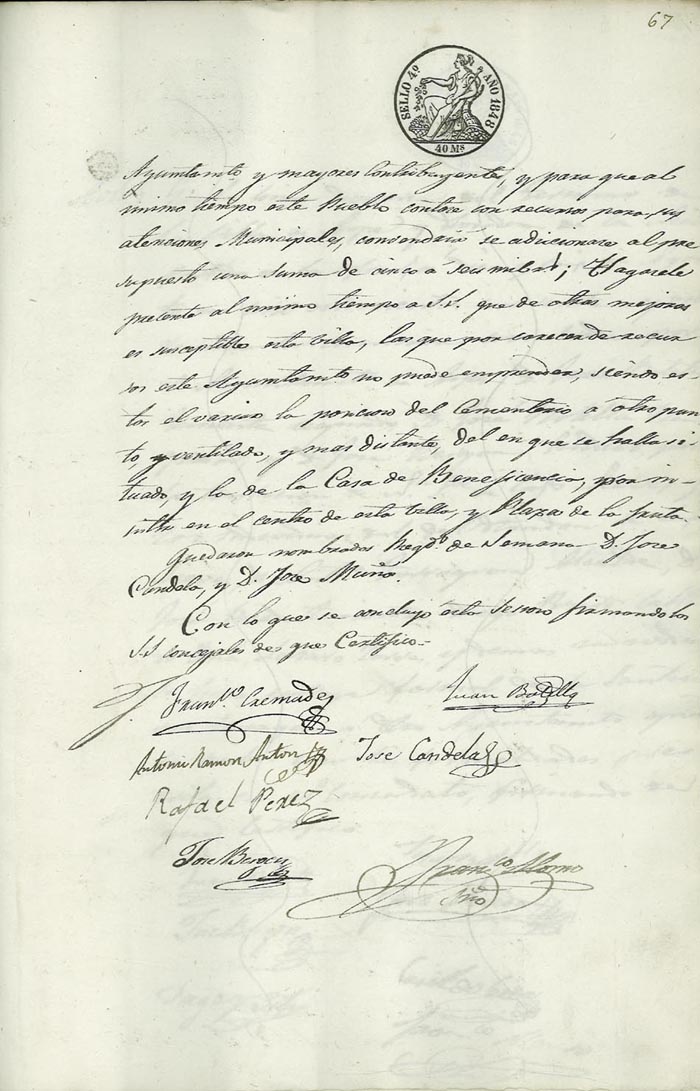 67
SELLO 4º AÑO 1848
40 Ms
Ayuntamto y mayores Contribuyentes, y para que al
mismo tiempo este Pueblo contase con recursos para sus
atenciones Municipales, convendria se adicionare al pre
supuesto una suma de cinco á seis mil rs; Hagasele
presente al mismo tiempo a S.S. que de otras mejoras
es susceptible esta villa, las que por carecer de recur
sos este Ayuntamto no puede emprender, siendo es
tos el variar la posicion del Cementerio á otro pun
to, y ventilado, y mas distante, del en que se halla si
tuado, y la de la Casa de Beneficencia, por in
en el centro de esta villa, y Plaza de la fruta.
Quedaron nombrados Regs de Semana D. Jose
Candela, y D. Jose Muñoz.
Con lo que se concluyó esta Sesion firmando los
S.S concejales de que Certifico=
Franco Cremades
Juan Botella
Antonio Ramon Anton
Jose Candela
Rafael Perez
Jose
Franco
Srio